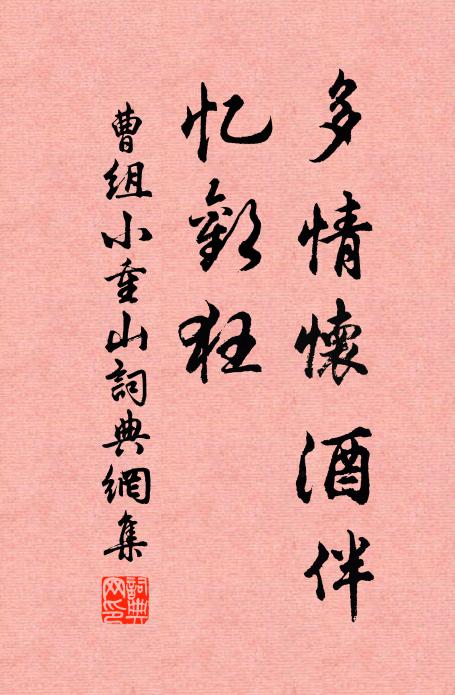 多情懷酒伴
忆歡狂
曹组小重山詞典網集
詞典网印